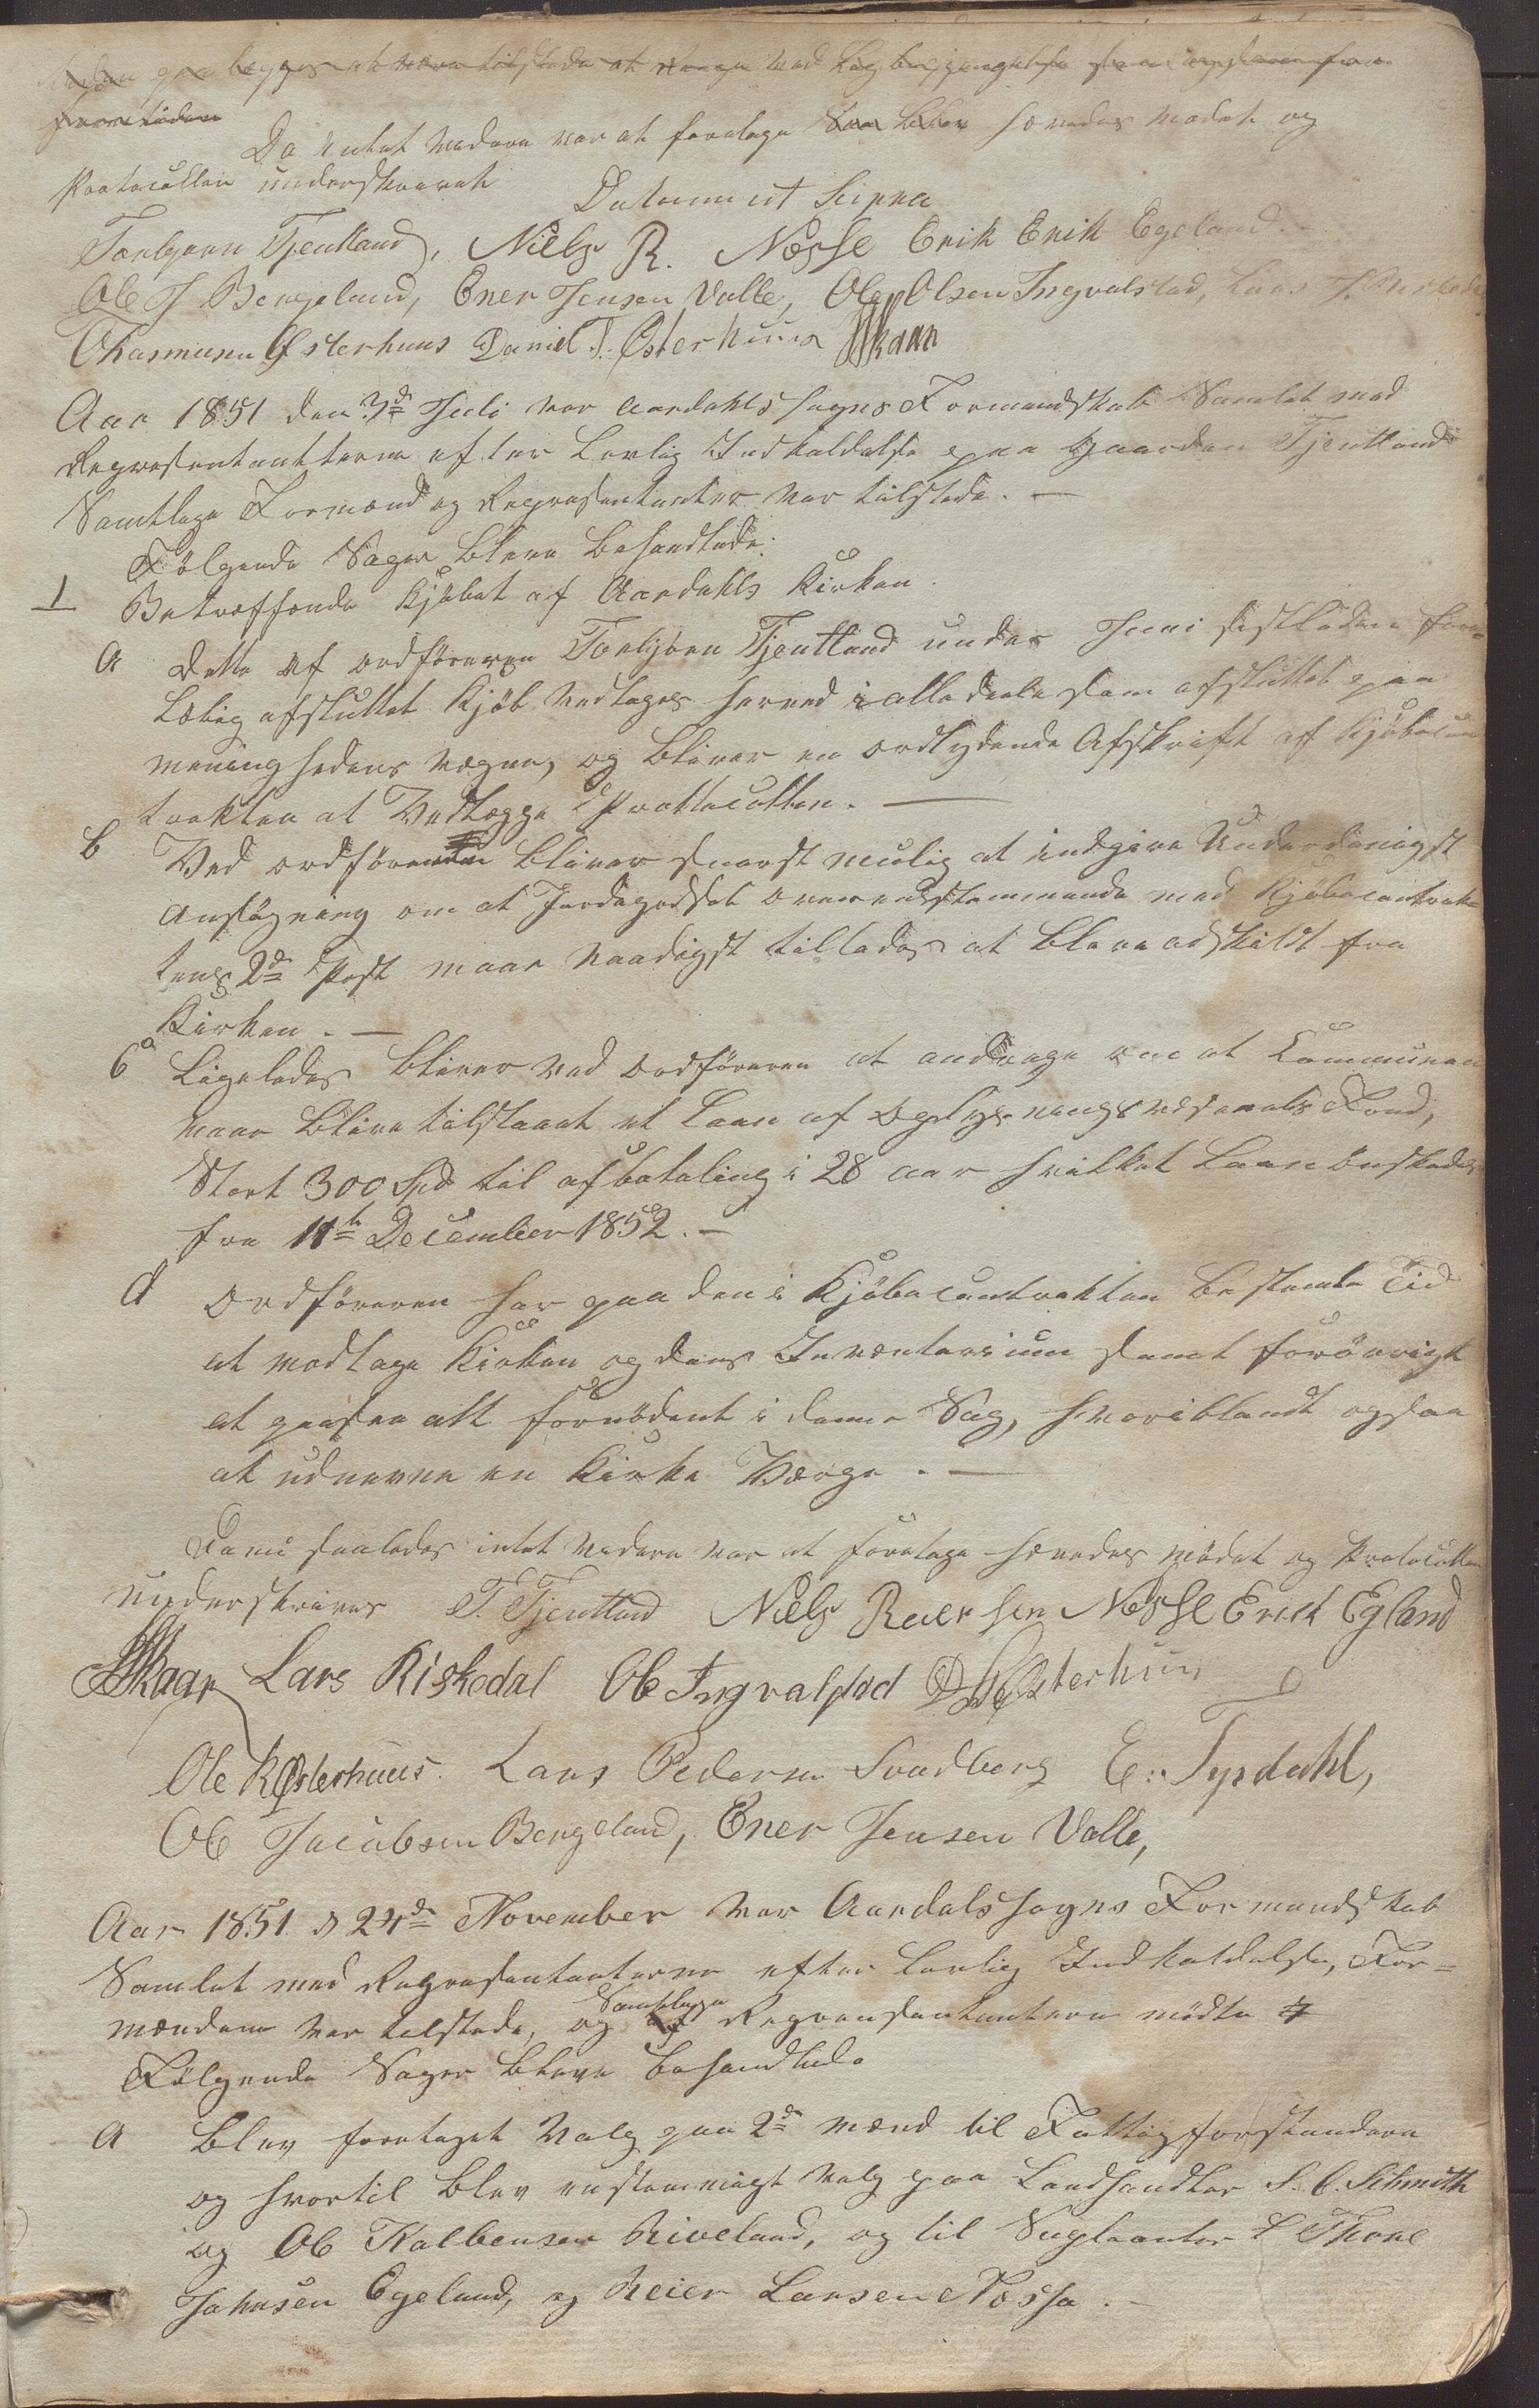 Da intet videre var at foretage hævedes mødet og
Protocollen underskrevet
Datum ut supra
Torbjørn Tjentland, Niels R. Nesse Erik Erik Egeland.
Ole J Bergeland, Ener Jensen Valle, Ole Olsen Ingvalstad, Lars
O Rasmusen Østerhuus Daniel T. Østerhuus
Aar 1851 den 3d Juli var Aardahls Sogns Formandskab Samlet med
Representantterne efter Lovlig Indkaldelse paa Gaarden Tjentland
Samtlige Formænd og Representanter var tilstede. —
Følgende Sager bleve behandlede:
1 Betreffende Kjøbet af Aardahls Kirken.
a Dette af ordføreren Torbjørn Tjentland under Juni sistleden fore-
løbig afsluttet Kjøb vedtages herved i alle deele som afsluttet paa
menighedens vegne, og bliver en ordlydende Afskrift af Kjøbecon
trakten at Vedlægge Prottocollen. —
b Ved ordføreren bliver snarest mulig at indgive Underdanigst
Ansøgning om at Jordegodset overensstemmende med Kjøbecontrak
tens 2d Post maae naadigst tillades at bleve adskildt fra
Kirken. —
c Ligeledes bliver ved Ordføreren at andrage om at Communen
maae blive tilstaaet et Laan af Oplysningsvesenets Fond,
Stort 300 Spd til afbetaling i 28 aar hvilket Laan ønskedes
fra 11te December 1852. —
d Ordføreren har paa den i Kjøbecontrakten bestemte Tid
at modtage Kirken og dens Inventarium samt forøvrigt
at passe alt fornødent i denne Sag, hvoriblandt ogsaa
at udnevne en Kirke Værge. —
Da nu saaledes intet videre var at foretage hævedes mødet og Protocollen
underskrives T. Tjentland Niels Reiersen Nesse Erick Egland
Lars Riskedal Ole Ingvalstad D Østerhuus
Ole R Østerhuus. Lars Pedersen Svadberg E: Tysdahl,
Ole Jacobsen Bergeland, Ener Jensen Valle,
Aar 1851 d 24de November var Aardals Sogns Formandskab
Samlet med Representanterne efter Lovlig Indkaldelse, For-
mændene var tilstede, og Samtlige Representanterne mødte
Følgende Sager bleve behandlede
a Blev foretaget Valg paa 2de mænd til Fattigforstandere
og hvortil blev enstemmigt valg paa Landhandler S. C. Schmith
og Ole Kolbensen Riveland, og til Supleanter Thore
Johnsen Egeland, og Reier Larsen Nesse. —